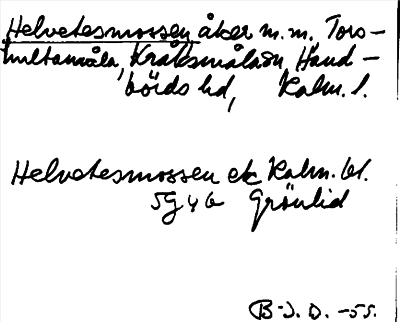 Helvetesmossen åker m.m. Tors-
hultamåla, Kråksmåla sn, Hand-
börds hd, Kalm. l.
Helvetesmossen ek Kalm. bl.
5G 4 b Grönlid
B-J. D. -55.